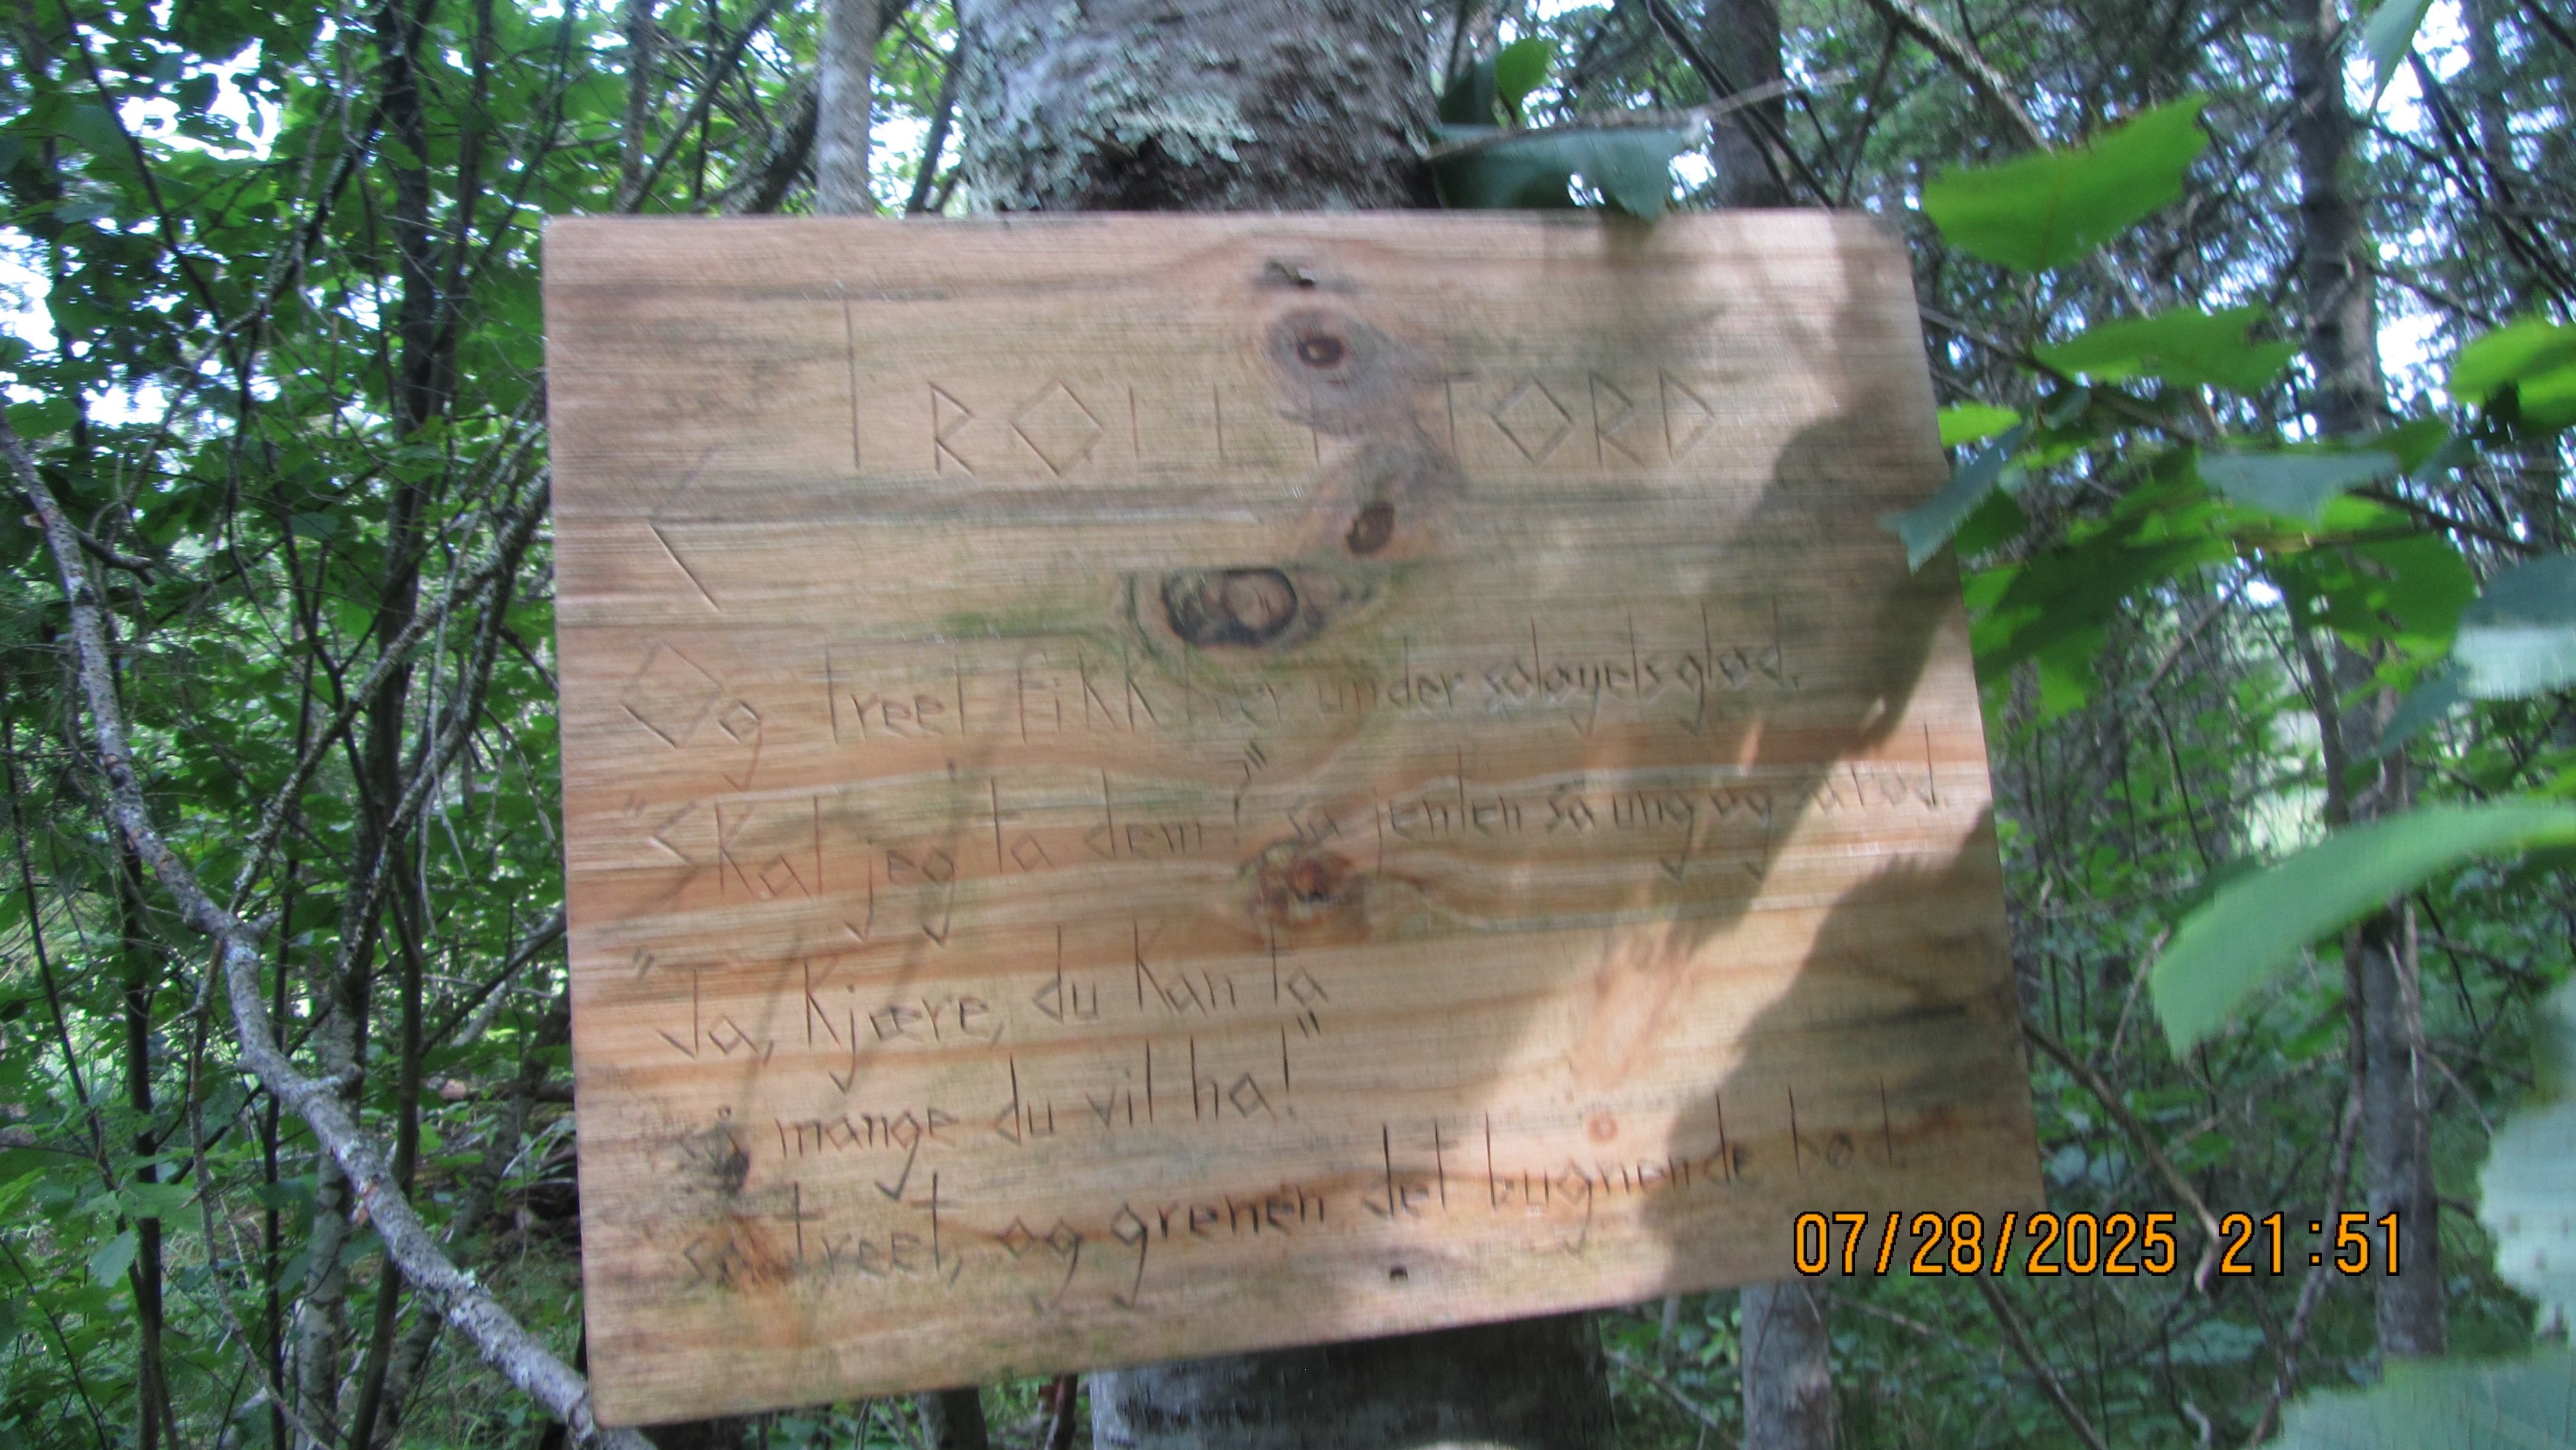 Og treet fikk bær under soløyets glød.
"Skal jeg ta dem?" sa jenten så ung og så rød.
"Ja, kjære, du kan ta
så mange du vil ha!"
sa treet, og grenen det bugnende bød.
07/28/2025 21:51